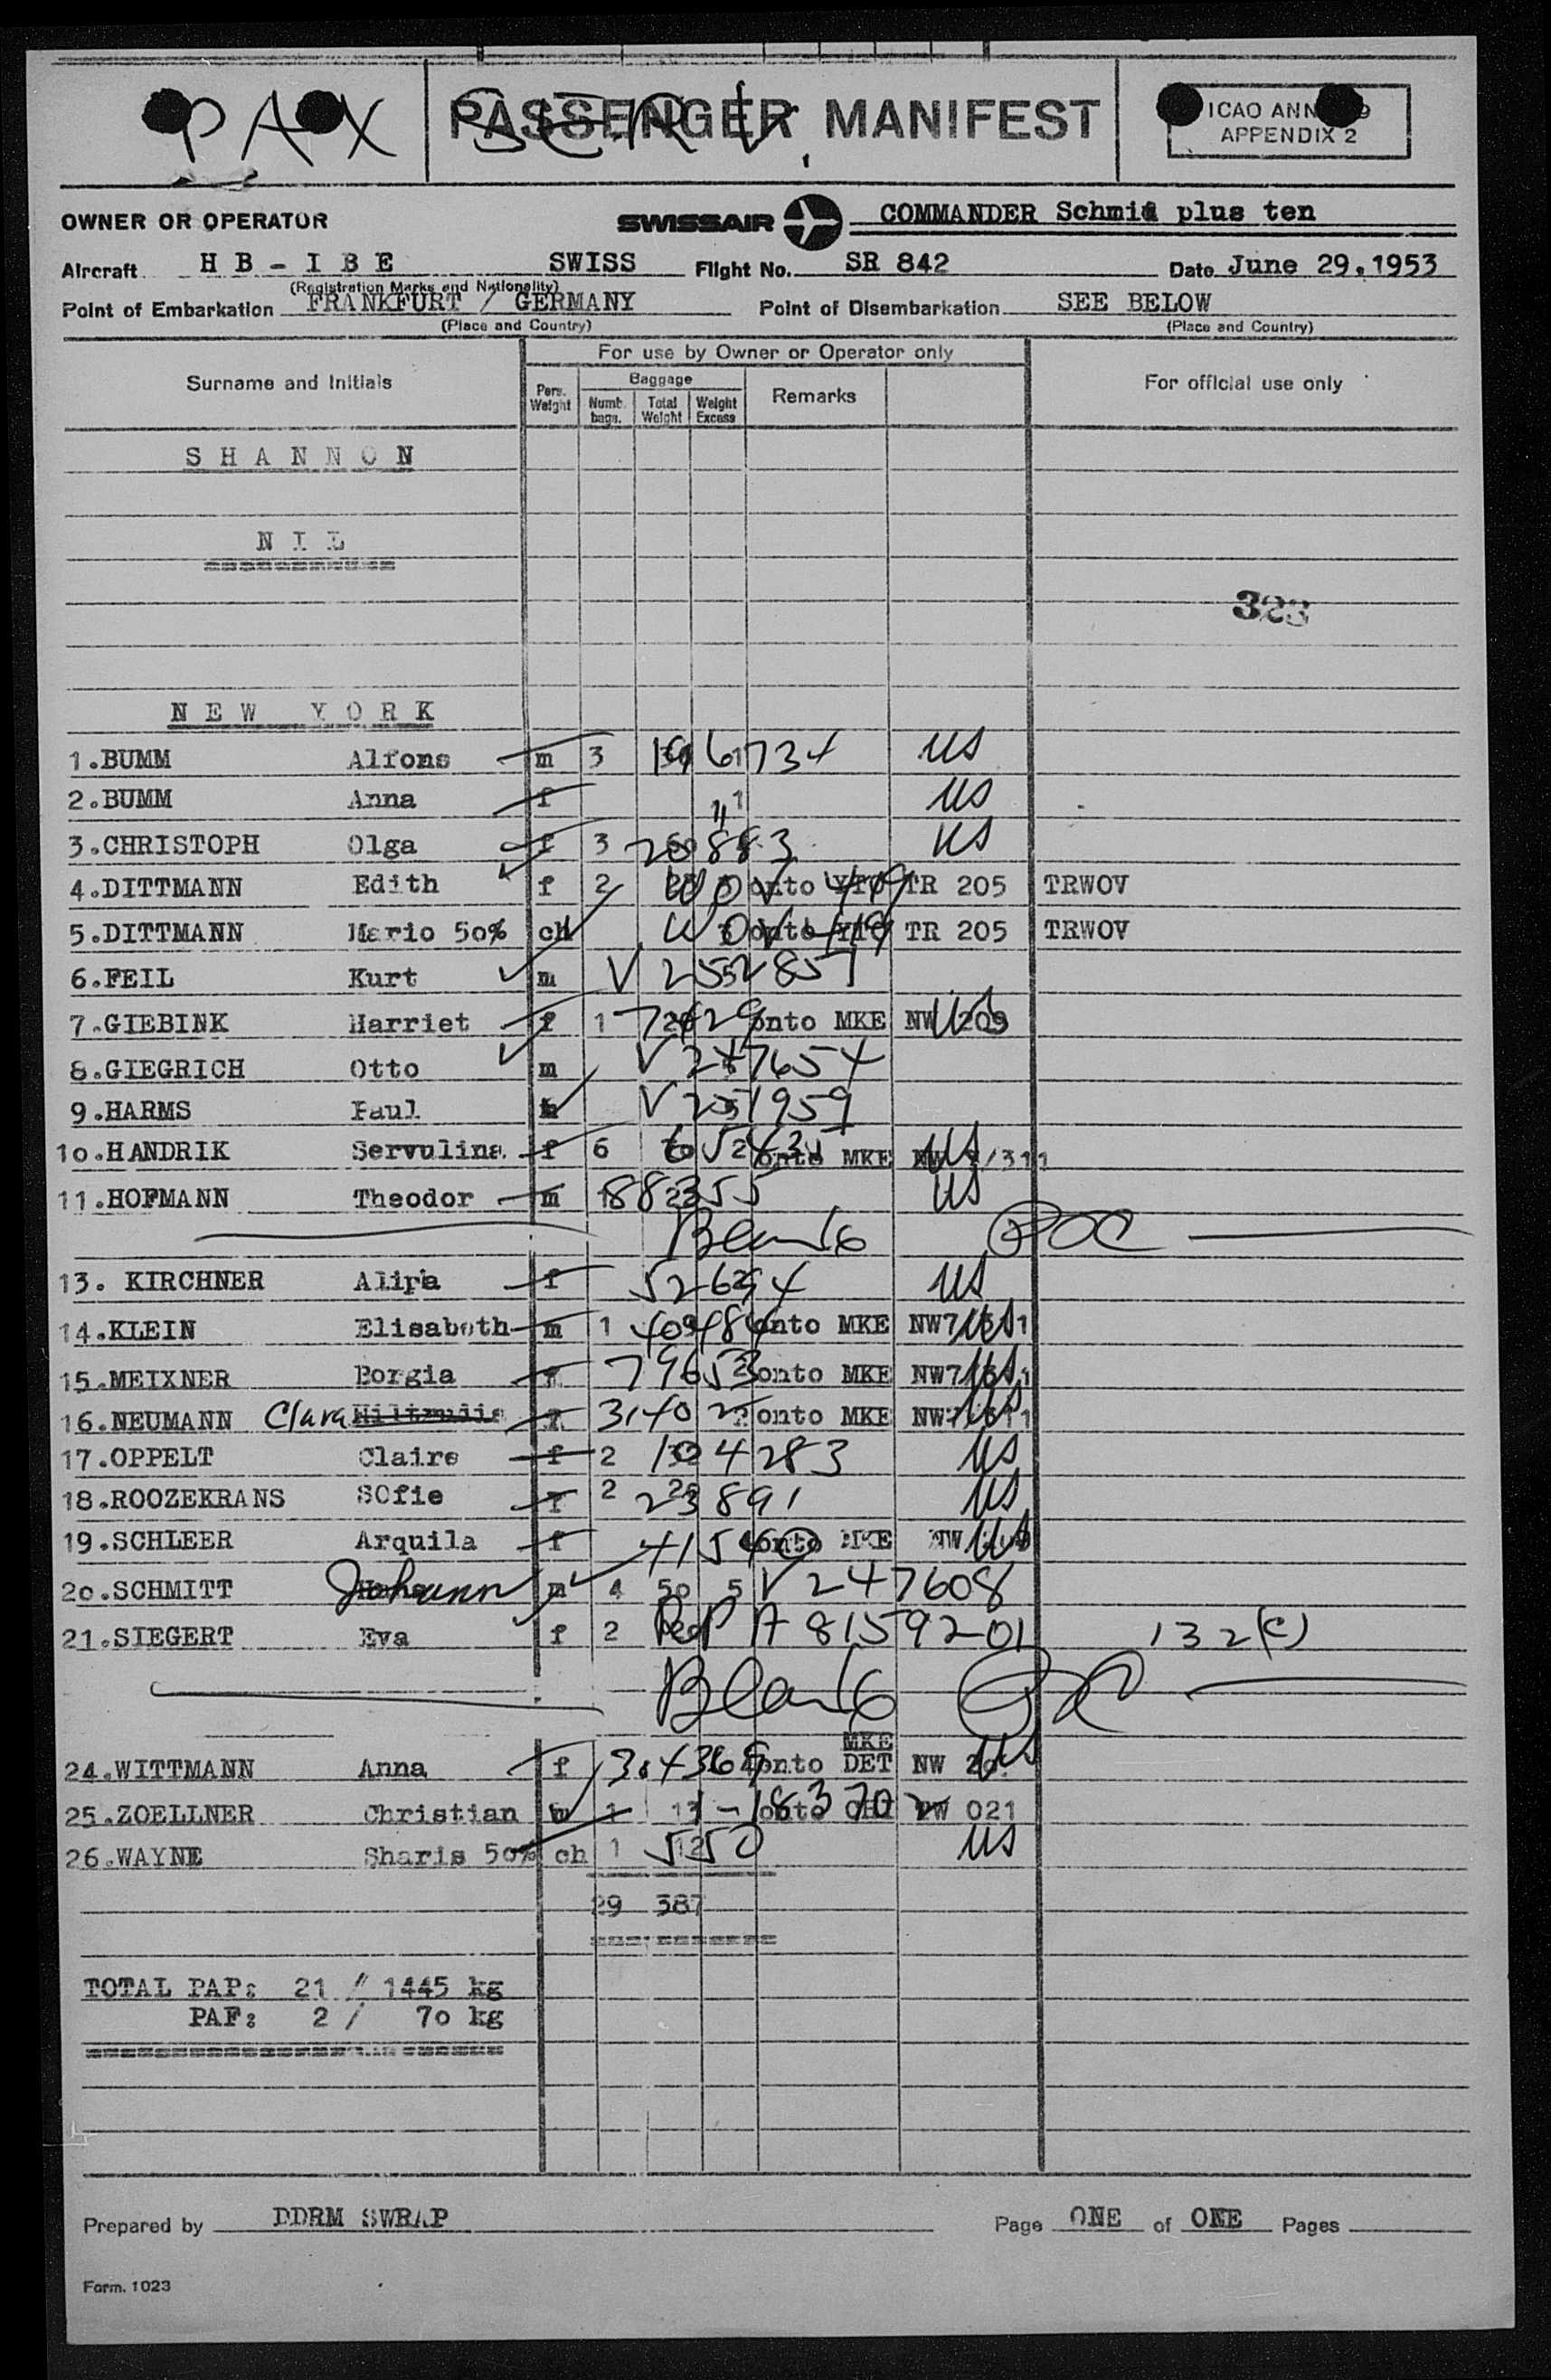 PAX
PASSENGER MANIFEST
ICAO ANN 9
APPENDIX 2
OWNER OR OPERATOR SWISSAIR COMMANDER Schmid plus ten
Aircraft HB-IBE SWISS Flight No. SR 842 Date June 29.1953
(Registration Marks and Nationality)
Point of Embarkation FRANKFURT / GERMANY Point of Disembarkation SEE BELOW
(Place and Country) (Place and Country)
For use by Owner or Operator only
Surname and Initials Pers. Weight Baggage Remarks For official use only
Numb. bags. Total Weight Weight Excess
SHANNON
NIL
323
NEW YORK
1.BUMM Alfons m 3 US
2.BUMM Anna f " US
3.CHRISTOPH Olga f 3 US
4.DITTMANN Edith f 2 WOV onto TR 205 TRWOV
5.DITTMANN Mario 50% ch WOV onto TR 205 TRWOV
6.FEIL Kurt m V 2552857
7.GIEBINK Harriet f 1 onto MKE NW 209 US
8.GIEGRICH Otto m V 247654
9.HARMS Paul V 251959
10.HANDRIK Servulina f 6 onto MKE US
11.HOFMANN Theodor m US
Blank
13. KIRCHNER f US
14.KLEIN Elisabeth m 1 onto MKE US
15.MEIXNER Borgia f onto MKE US
16.NEUMANN Clara onto MKE US
17.OPPELT Claire f 2 104283 US
18.ROOZEKRANS SOfie f 2 23891 US
19.SCHLEER Arquila f onto MKE NW US
20.SCHMITT Johann m 4 50 5 V 247608
21.SIEGERT Eva f 2 A 8159201 132(c)
Blank
MKE
24.WITTMANN Anna f onto DET NW US
25.ZOELLNER Christian 1 onto 021
26.WAYNE Sharis 50% ch 1 US
29 387
TOTAL PAP: 21 / 1445 kg
PAF: 2 / 70 kg
Prepared by DDRM SWRAP Page ONE of ONE Pages
Form. 1023